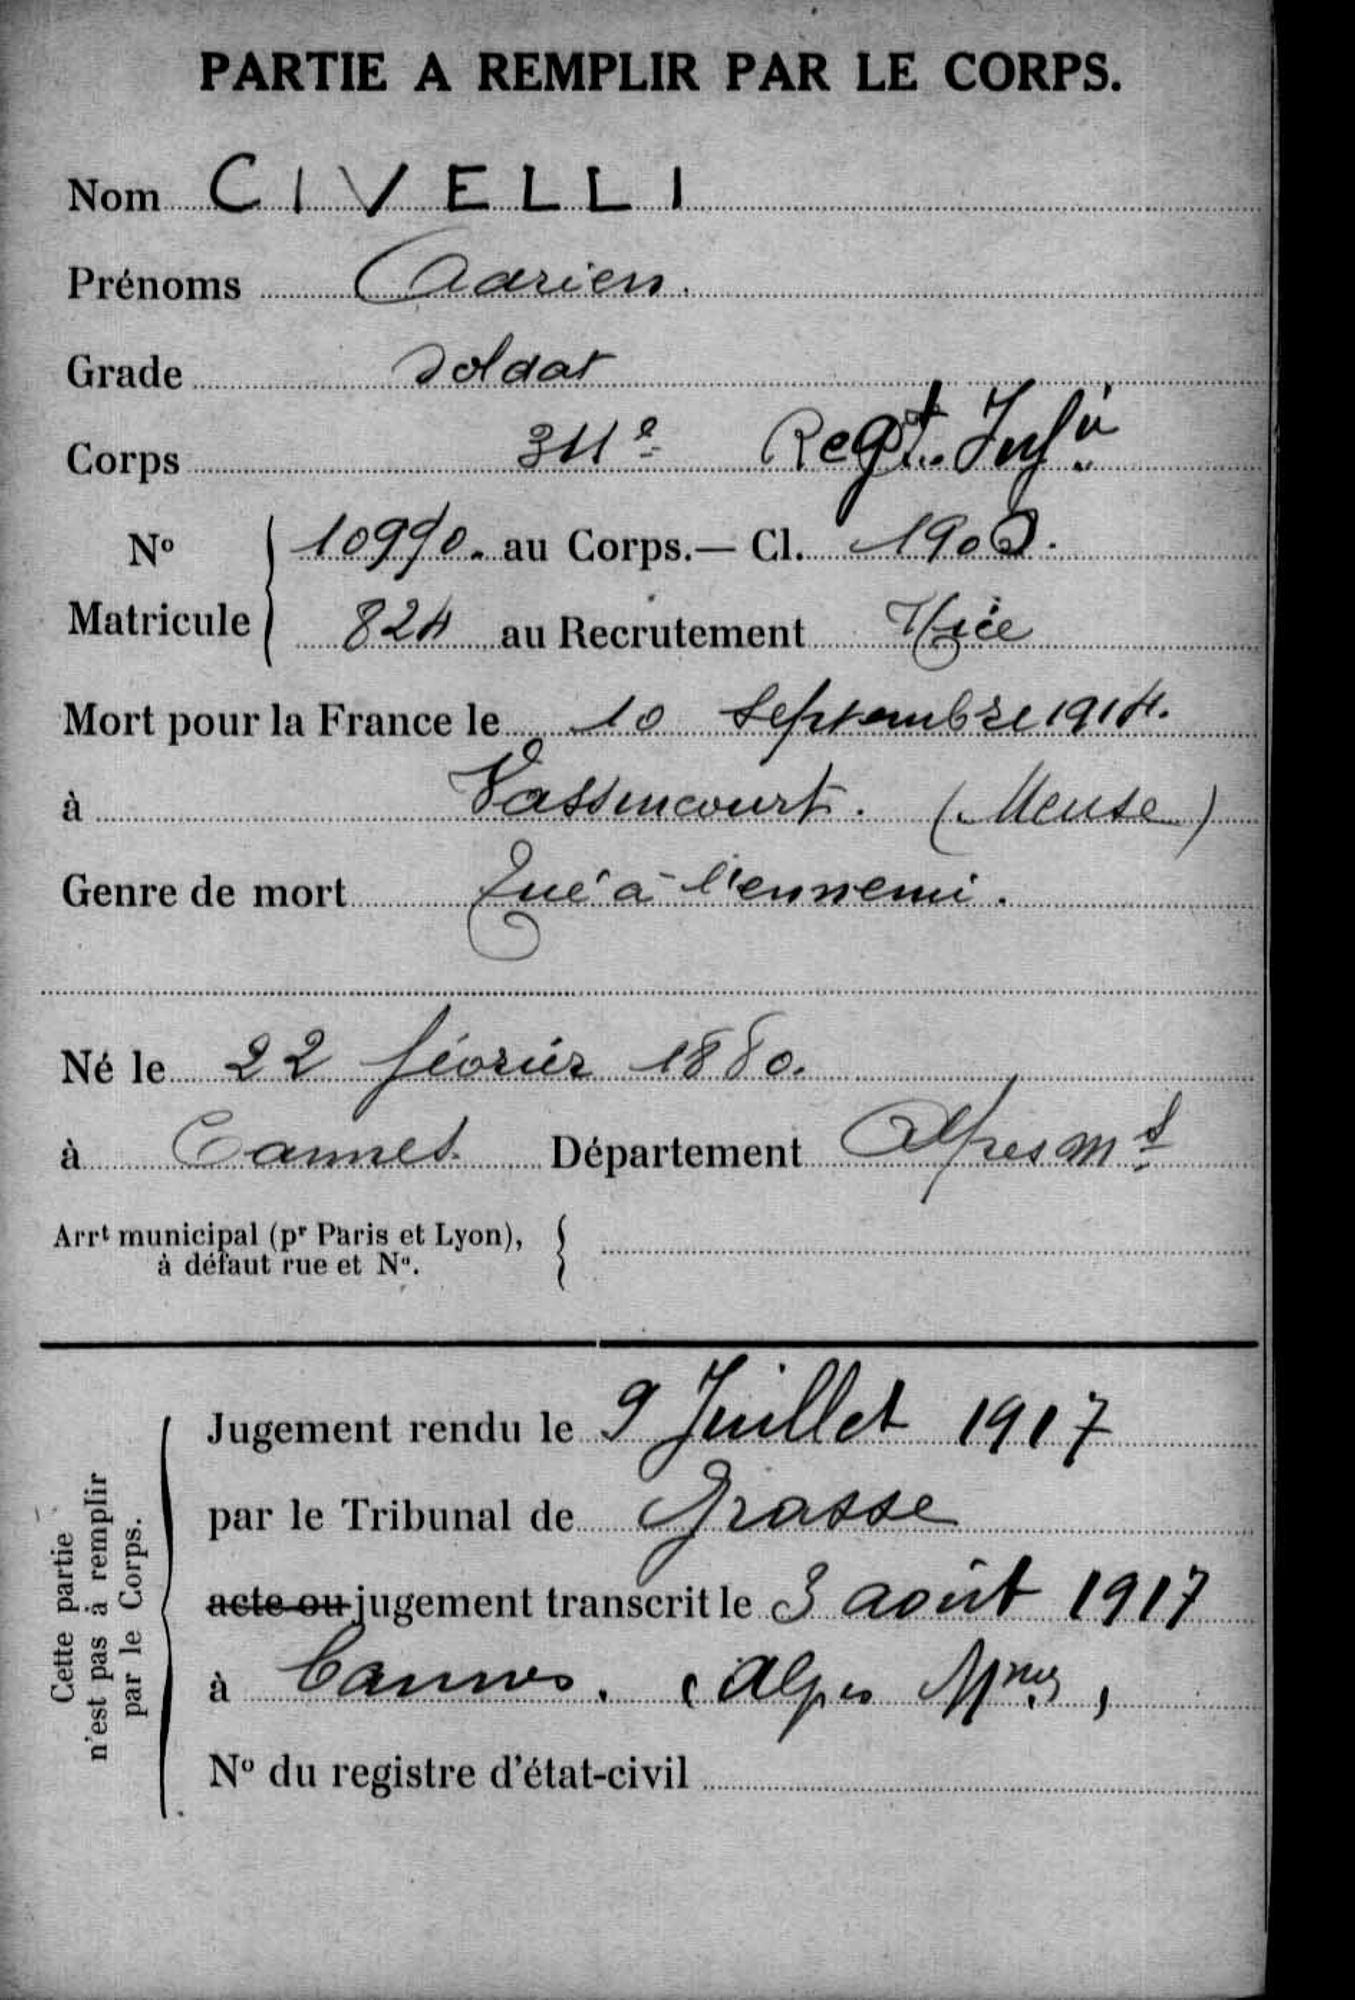 PARTIE A REMPLIR PAR LE CORPS.
Nom CIVELLI
Prénoms Adrien.
Grade Soldat
Corps 311e Regt. Infie
No 10990. au Corps.— Cl. 1900.
Matricule 824 au Recrutement Nice
Mort pour la France le 10 Septembre 1914.
à Vassincourt. (Meuse)
Genre de mort Tué à l'ennemi.
Né le 22 février 1880.
à Cannes. Département Alpes Mes
Arrt municipal (pr Paris et Lyon),
à défaut rue et No.
Cette partie
n'est pas à remplir
par le Corps.
Jugement rendu le 9 Juillet 1917
par le Tribunal de Grasse
acte ou jugement transcrit le 3 août 1917
à Cannes. (Alpes Mmes)
No du registre d'état-civil